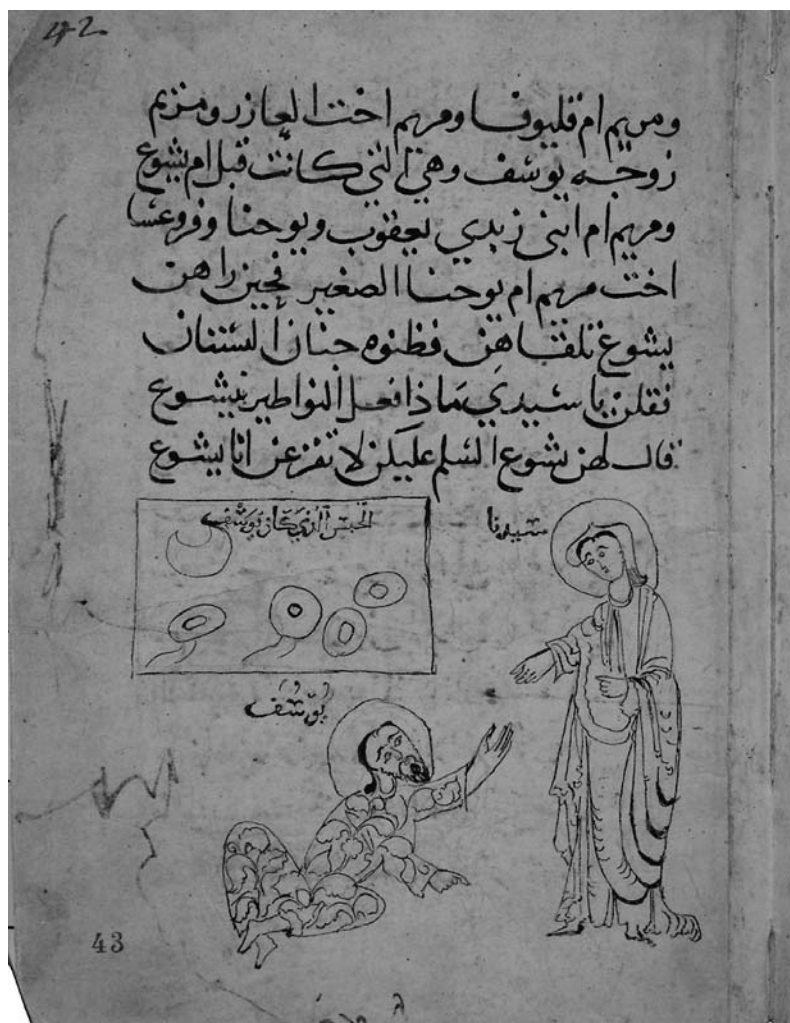 42
ومريم ام قليوفا ومريم اخت العازر ومريم
زوجه يوسف وهي التي كانت قبل ام يشوع
ومريم ام ابني زبدي يعقوب ويوحنا وفروعسا
اخت مريم ام يوحنا الصغير فحين راهن
يشوع تلقاهن فظنوه جنان البستان
فقلن يا سيدي ماذا فعل النواطير بيشوع
قال لهن يشوع السلم عليكن لا تفزعن انا يشوع
الحبس الذي كان يوسف
سيدنا
يوسف
43